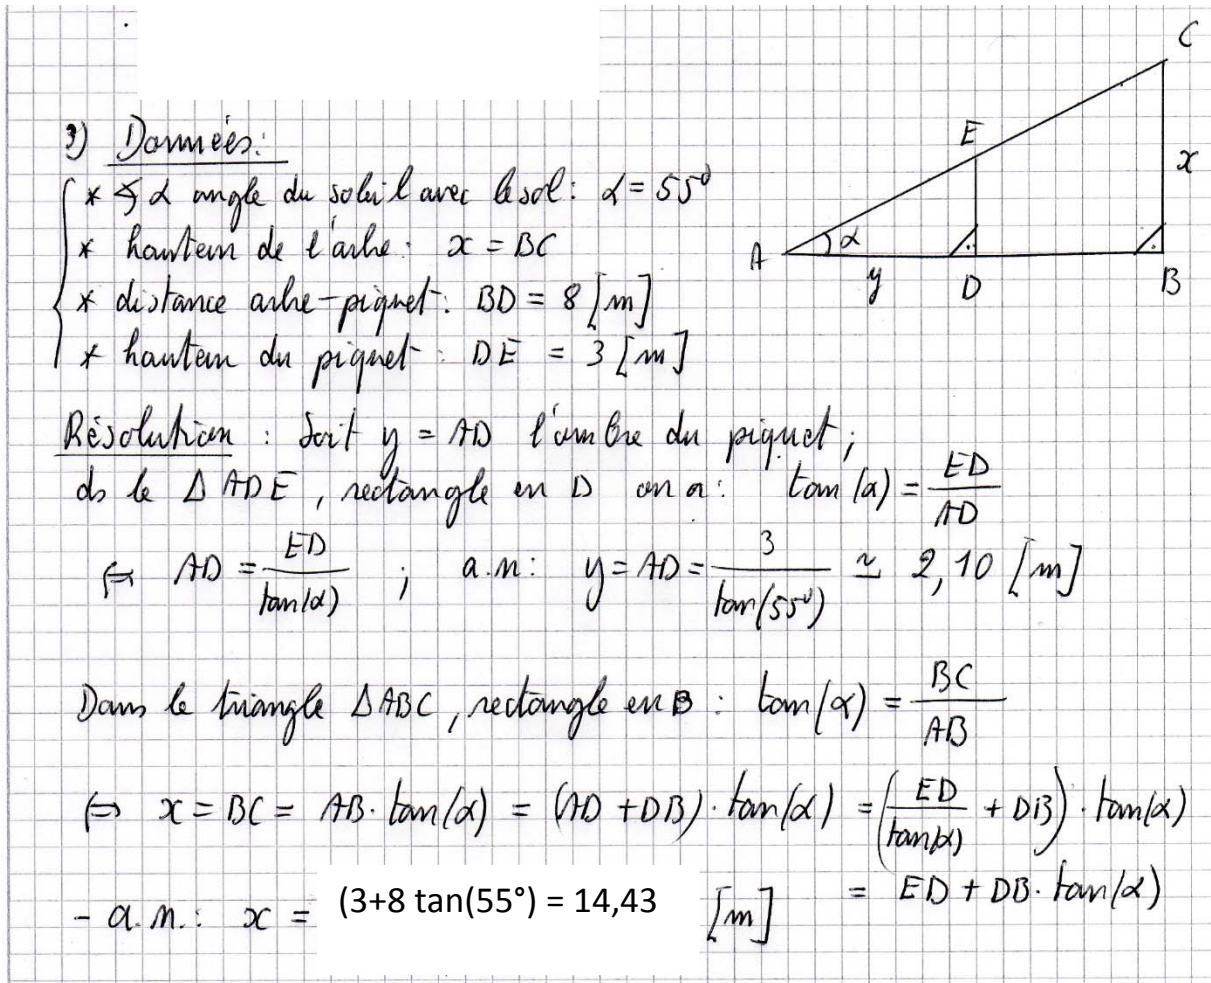 3) Données:
* ∢ α angle du soleil avec le sol: α = 55°
* hauteur de l'arbre: x = BC
* distance arbre-piquet: BD = 8 [m]
* hauteur du piquet: DE = 3 [m]
C
E
x
A
α
y
D
B
Résolution : Soit y = AD l'ombre du piquet ;
ds le Δ ADE, rectangle en D on a: tan(α) = ED/AD
⇔ AD = ED/tan(α) ; a.n: y = AD = 3/tan(55°) ≃ 2,10 [m]
Dans le triangle ΔABC, rectangle en B : tan(α) = BC/AB
⇔ x = BC = AB · tan(α) = (AD + DB) · tan(α) = (ED/tan(α) + DB) · tan(α)
= ED + DB · tan(α)
- a.n.: x = (3+8 tan(55°) = 14,43 [m]